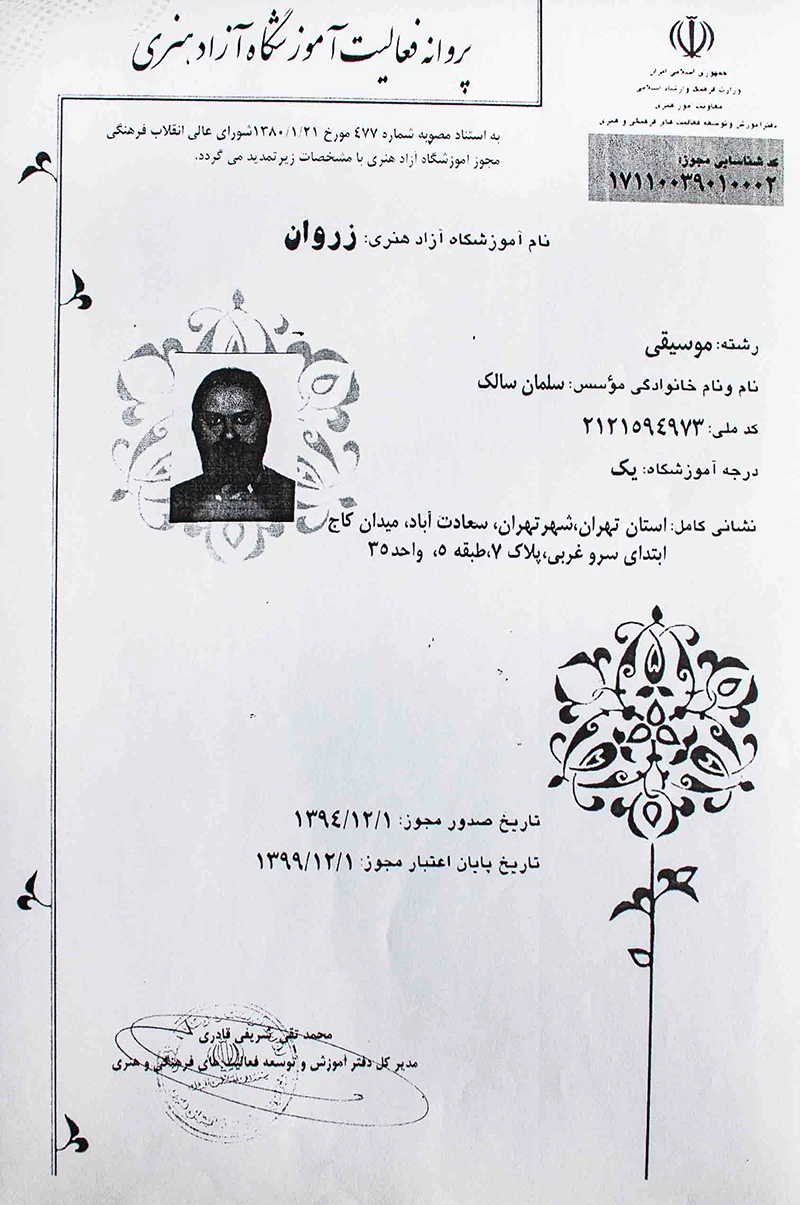 پروانه فعالیت آموزشگاه آزاد هنری
جمهوری اسلامی ایران
وزارت فرهنگ و ارشاد اسلامی
معاونت امور هنری
دفتر آموزش و توسعه فعالیت های فرهنگی و هنری
کد شناسایی مجوز:
۱۷۱۱۰۰۳۹۰۱۰۰۰۲
به استناد مصوبه شماره ٤۷۷ مورخ ۱۳۸۰/۱/۲۱شورای عالی انقلاب فرهنگی
مجوز اموزشگاه آزاد هنری با مشخصات زیر تمدید می گردد.
نام آموزشگاه آزاد هنری: زروان
رشته: موسیقی
نام ونام خانوادگی مؤسس: سلمان سالک
کد ملی: ۲۱۲۱۵۹٤۹۷۳
درجه آموزشگاه: یک
نشانی کامل: استان تهران،شهرتهران، سعادت آباد، میدان کاج
ابتدای سرو غربی،پلاک ۷،طبقه ۵، واحد۳۵
تاریخ صدور مجوز: ۱۳۹٤/۱۲/۱
تاریخ پایان اعتبار مجوز: ۱۳۹۹/۱۲/۱
محمد تقی شریفی قادری
مدیر کل دفتر آموزش و توسعه فعالیت های فرهنگی و هنری